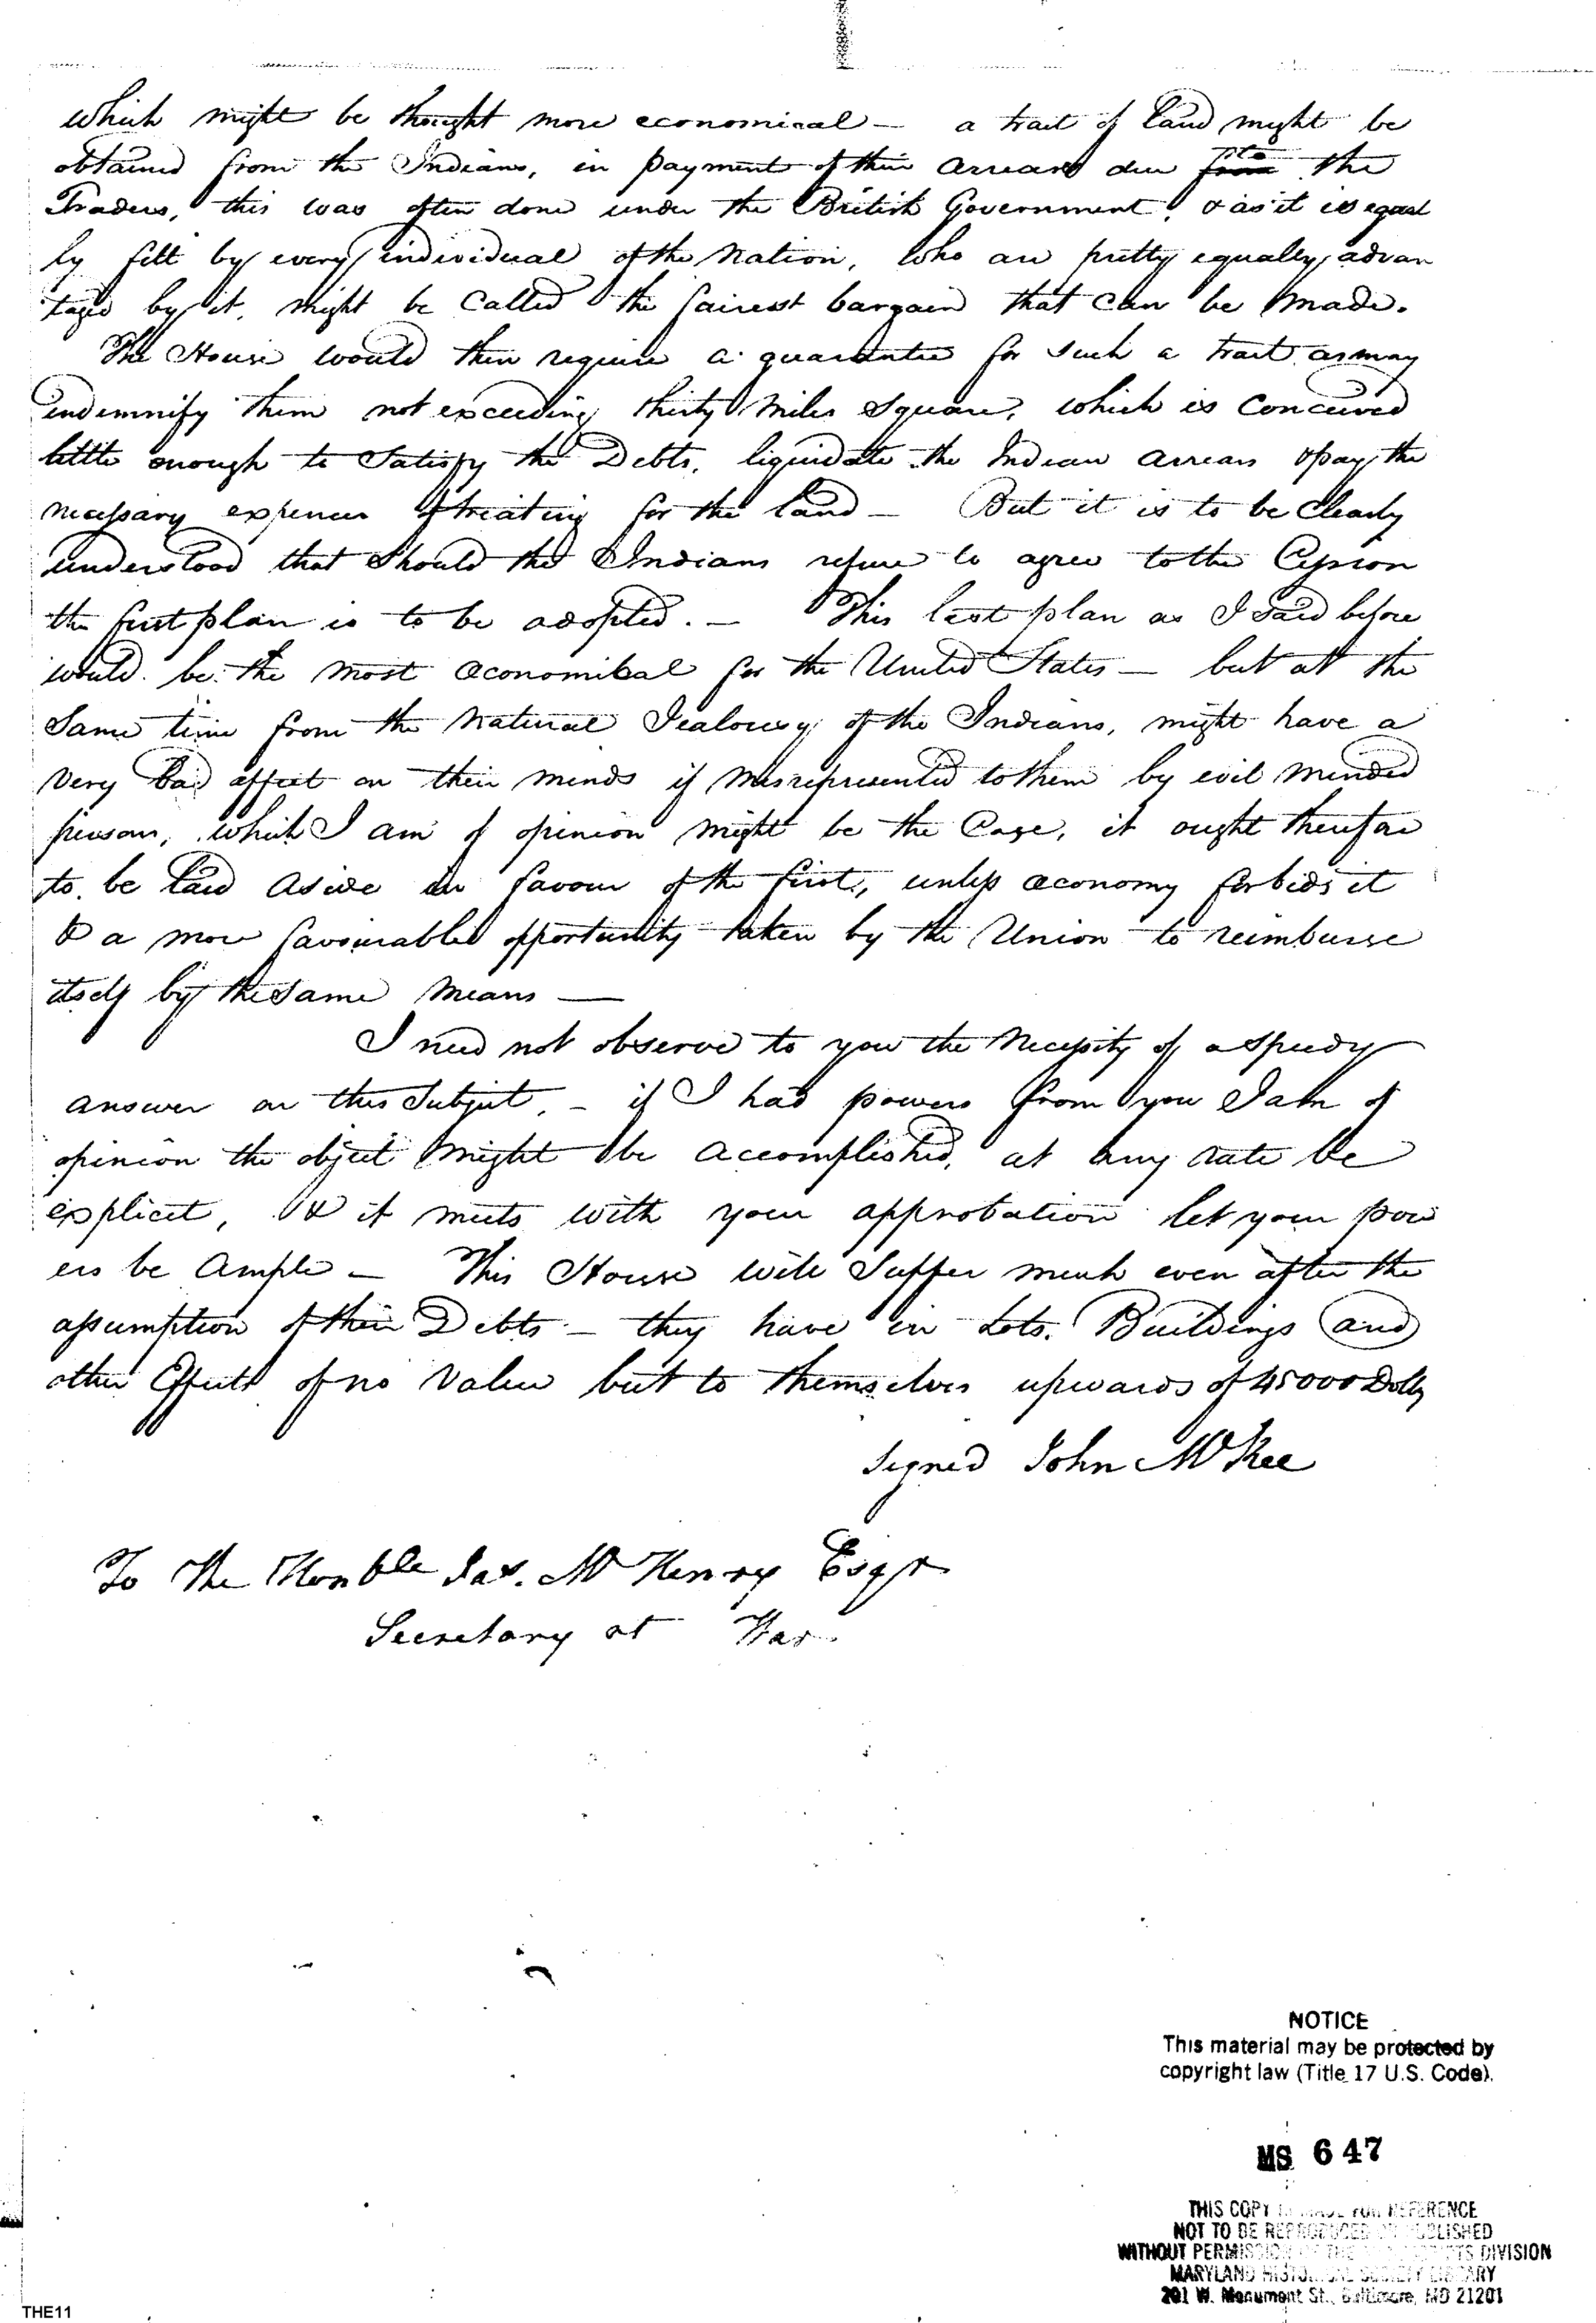 which might be thought more economical — a tract of land might be
obtained from the Indians, in payment of their arrears due from to the
Traders, this was often done under the British Government, & as it is equal
ly felt by every individual of the Nation, who are pretty equally advan
taged by it, might be Called the fairest bargain that can be made.
The House would then require a guarantee for such a tract as may
indemnify them not exceeding thirty Miles Square, which is Conceived
little enough to Satisfy the Debts, liquidate the Indian arrears & pay the
necessary expences of treating for the land — But it is to be Clearly
understood that should the Indians refuse to agree to the Cession
the first plan is to be adopted. — This last plan as I said before
would be the most œconomikal for the United States — but at the
Same time from the Natural Jealousy of the Indians, might have a
very bad affect on their minds if misrepresented to them by evil minded
persons, which I am of opinion might be the Case, it ought therefore
to be laid aside in favour of the first, unless œconomy forbids it
& a more favourable opportunity taken by the Union to reimburse
itself by the same Means —
I need not observe to you the Necessity of a speedy
answer on this Subject, – if I had powers from you I am of
opinion the object might be accomplished, at any rate be
explicit, & if it meets with your approbation let your pow
ers be Ample — This House will Suffer much even after the
assumption of their Debts — they have in Lots, Buildings and
other Effects of no Value but to themselves upwards of 45000 Dolls
Signed John McKee
To The Honble Jas. McHenry Esqr
Secretary at War
NOTICE
This material may be protected by
copyright law (Title 17 U.S. Code).
MS 647
THIS COPY IS MADE FOR REFERENCE
NOT TO BE REPRODUCED OR PUBLISHED
WITHOUT PERMISSION OF THE DIVISION
MARYLAND HISTORICAL SOCIETY LIBRARY
201 W. Monument St., Baltimore, MD 21201
THE11